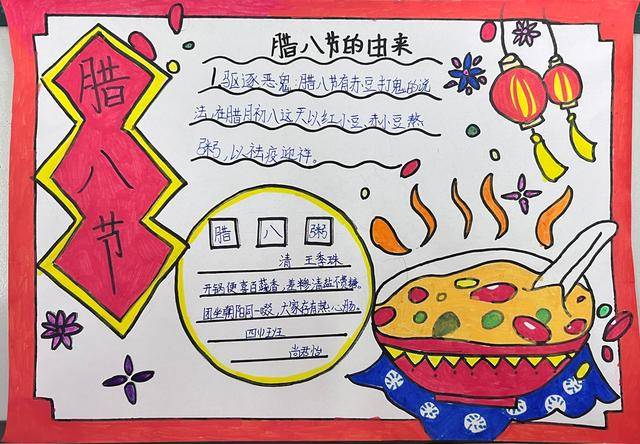 腊八节
腊八节的由来
1驱逐恶鬼:腊八节有赤豆打鬼的说
法,在腊月初八这天以红小豆、赤小豆熬
粥,以祛疫迎祥。
腊八粥
清 王季珠
开锅便喜百蔬香,差糁清盐不费糖。
团坐朝阳同一啜,大家存有热心肠。
四(4)班